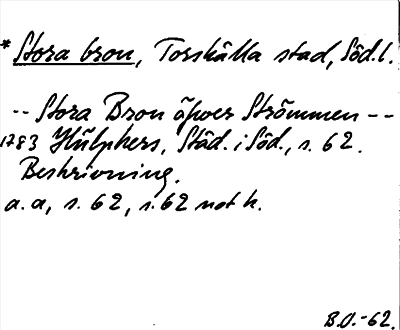 * Stora bron, Torshälla stad, Söd.l.
-- Stora Bron äfwer Strömmen --
1783 Hülphers, Städ. i Söd., s. 62.
Beskrivning.
a.a, s. 62, s. 62 not k.
B.O.-62.